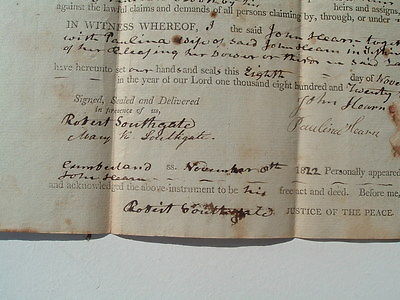 heirs and assigns,
against the lawful claims and demands of all persons claiming by, through, or under
IN WITNESS WHEREOF, I the said John Hearn
with Paulina wife of said John Hearn in
of her Releasing her Dower in said
have hereunto set our hands and seals this Eighth day of Novem
in the year of our Lord one thousand eight hundred and Twenty
Signed, Sealed and Delivered
in presence of us,
John Hearn
Robert Southgate
Paulina Hearn
Mary K Southgate.
Cumberland ss. November 8th 1822 Personally appeared
John Hearn
and acknowledged the above instrument to be his free act and deed. Before me,
Robert Southgate JUSTICE OF THE PEACE.